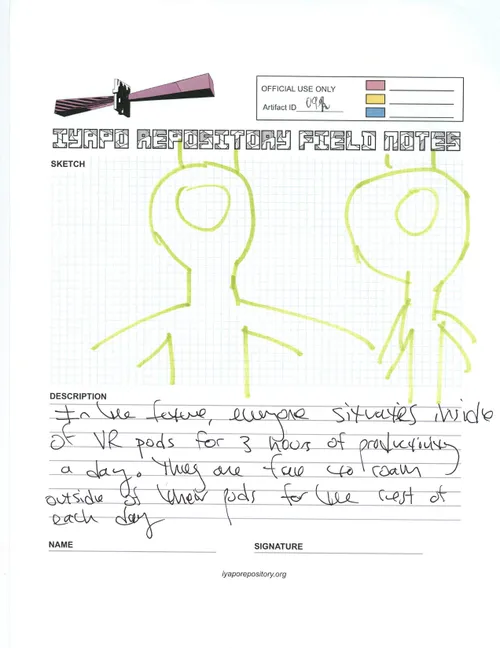 OFFICIAL USE ONLY
Artifact ID
IYAPO REPOSITORY FIELD NOTES
SKETCH
DESCRIPTION
In the future, everyone situates inside
of VR pods for 3 hours of productivity
a day. They are free to roam
outside of their pods for the rest of
each day
NAME
SIGNATURE
iyaporepository.org